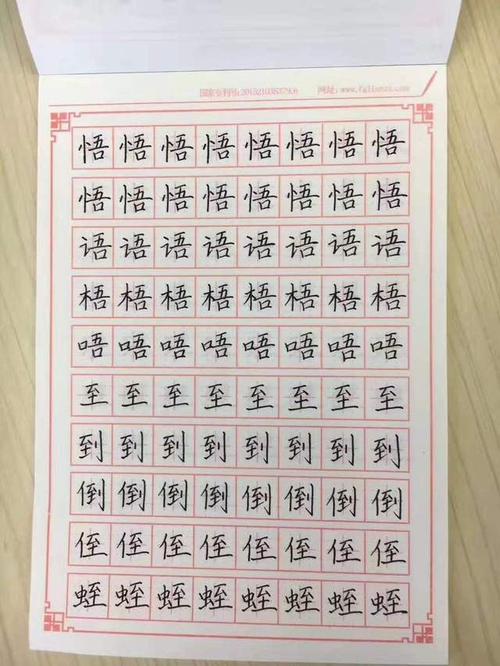 网址：www.fglianzi.com
悟悟悟悟悟悟悟悟
悟悟悟悟悟悟悟悟
语语语语语语语语
梧梧梧梧梧梧梧梧
唔唔唔唔唔唔唔唔
至至至至至至至至
到到到到到到到到
倒倒倒倒倒倒倒倒
侄侄侄侄侄侄侄侄
蛭蛭蛭蛭蛭蛭蛭蛭